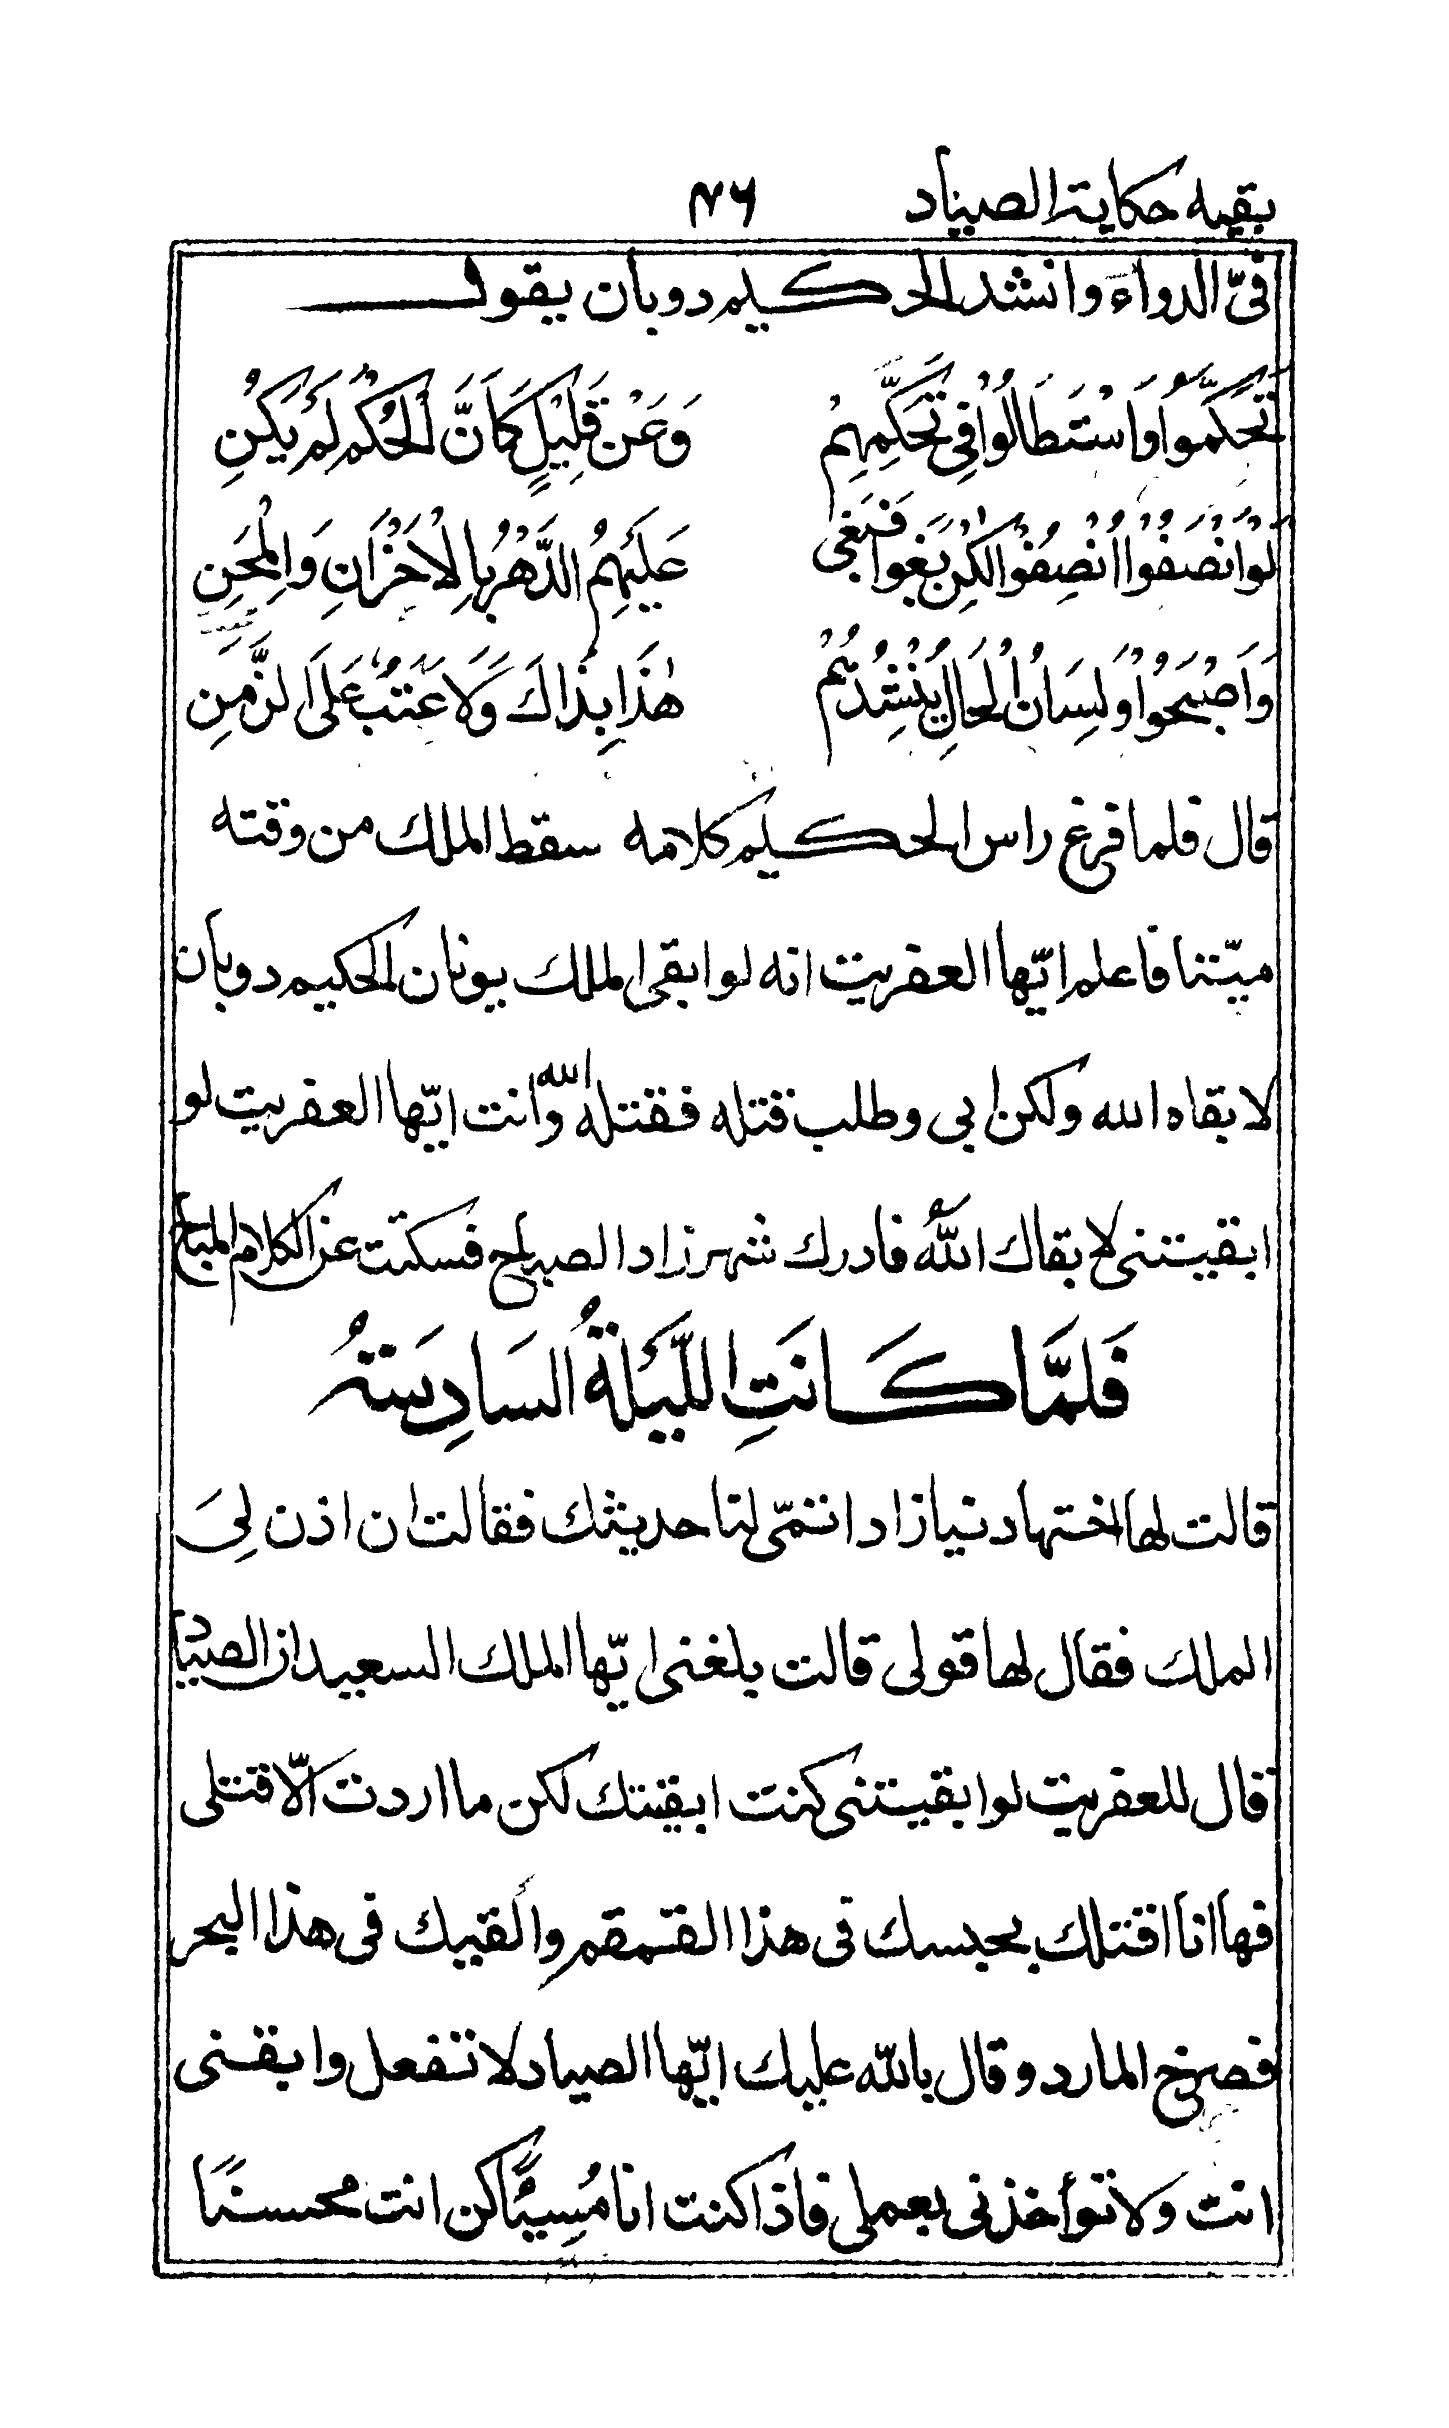 بقيه حكاية الصياد ٧٦
فىّ الدواءَ وانشد الحكيم دوبان يقول
تَحَكَّمُوا وَاسْتَطَالُوا فِي تَحَكُّمِهِمْ وَعَنْ قَلِيْلٍ كَأَنَّ الْحُكْمَ لَمْ يَكُنِ
لَوْ اَنْصَفُوْا اُنْصِفُوْا لٰكِنْ بَغَوا فَبَغى عَلَيْهِمُ الدَّهْرُ بِالْاَحْزَانِ وَالْمِحَنِ
وَاَصْبَحُوْا وَلِسَانُ الْحَالِ يُنْشِدُهُمْ هٰذَا بِذَاكَ وَلَا عَتَبٌ عَلَى الزَّمَنِ
قال فلما فرغ راس الحكيم كلامه سقط الملك من وقته
ميّتنا فاعلم ايّها العفريت انه لو ابقى الملك يونان الحكيم دوبان
لابقاه الله ولكن ابى وطلب قتله فقتله الله وانت ايّها العفريت لو
ابقيتنى لابقاك اللهُ فادرك شهرزاد الصباح فسكتت عن الكلام المباح
فَلَمَّا كَانَتِ اللَّيْلَةُ السَادِسَتهُ
قالت لها اختها دنيازاد اتمّى لنا حديثك فقالت ان اذن لِىَ
الملك فقال لها قولى قالت بلغنى ايّها الملك السعيد ان الصياد
قال للعفريت لو ابقيتنى كنت ابقيتك لكن ما اردت الّا قتلى
فها انا اقتلك بحبسك فى هذا القمقم والقيك فى هذا البحر
فصرخ المارد وقال باللّه عليك ايّها الصياد لا تفعل وابقنى
انت ولا توأخذنى بعملى فاذا كنت انا مُسِيئًا كن انت محسنًا